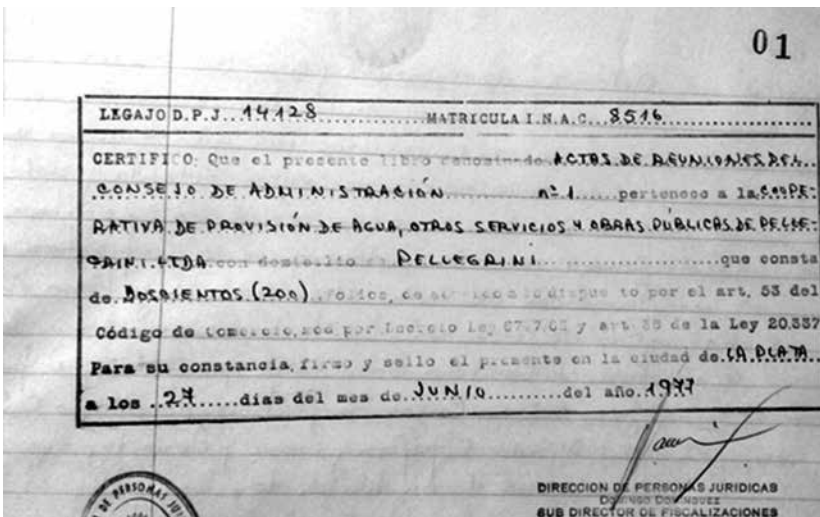 01
LEGAJO D.P.J. 14128 MATRICULA I.N.A.C. 8516
CERTIFICO: Que el presente libro denominado ACTAS DE REUNIONES DEL
CONSEJO DE ADMINISTRACIÓN nº 1 pertenece a la COOPE-
RATIVA DE PROVISIÓN DE AGUA, OTROS SERVICIOS Y OBRAS PÚBLICAS DE PELLE-
GRINI LTDA con domicilio en PELLEGRINI que consta
de DOSCIENTOS (200) folios, de acuerdo a lo dispuesto por el art, 53 del
Código de Comercio, por Decreto Ley y art. 38 de la Ley 20.337
Para su constancia, firmo y sello el presente en la ciudad de LA PLATA
a los 27 días del mes de JUNIO del año 1977
DIRECCION DE PERSONAS JURIDICAS
DOMINGO DOMINGUEZ
SUB DIRECTOR DE FISCALIZACIONES
DE PERSONAS